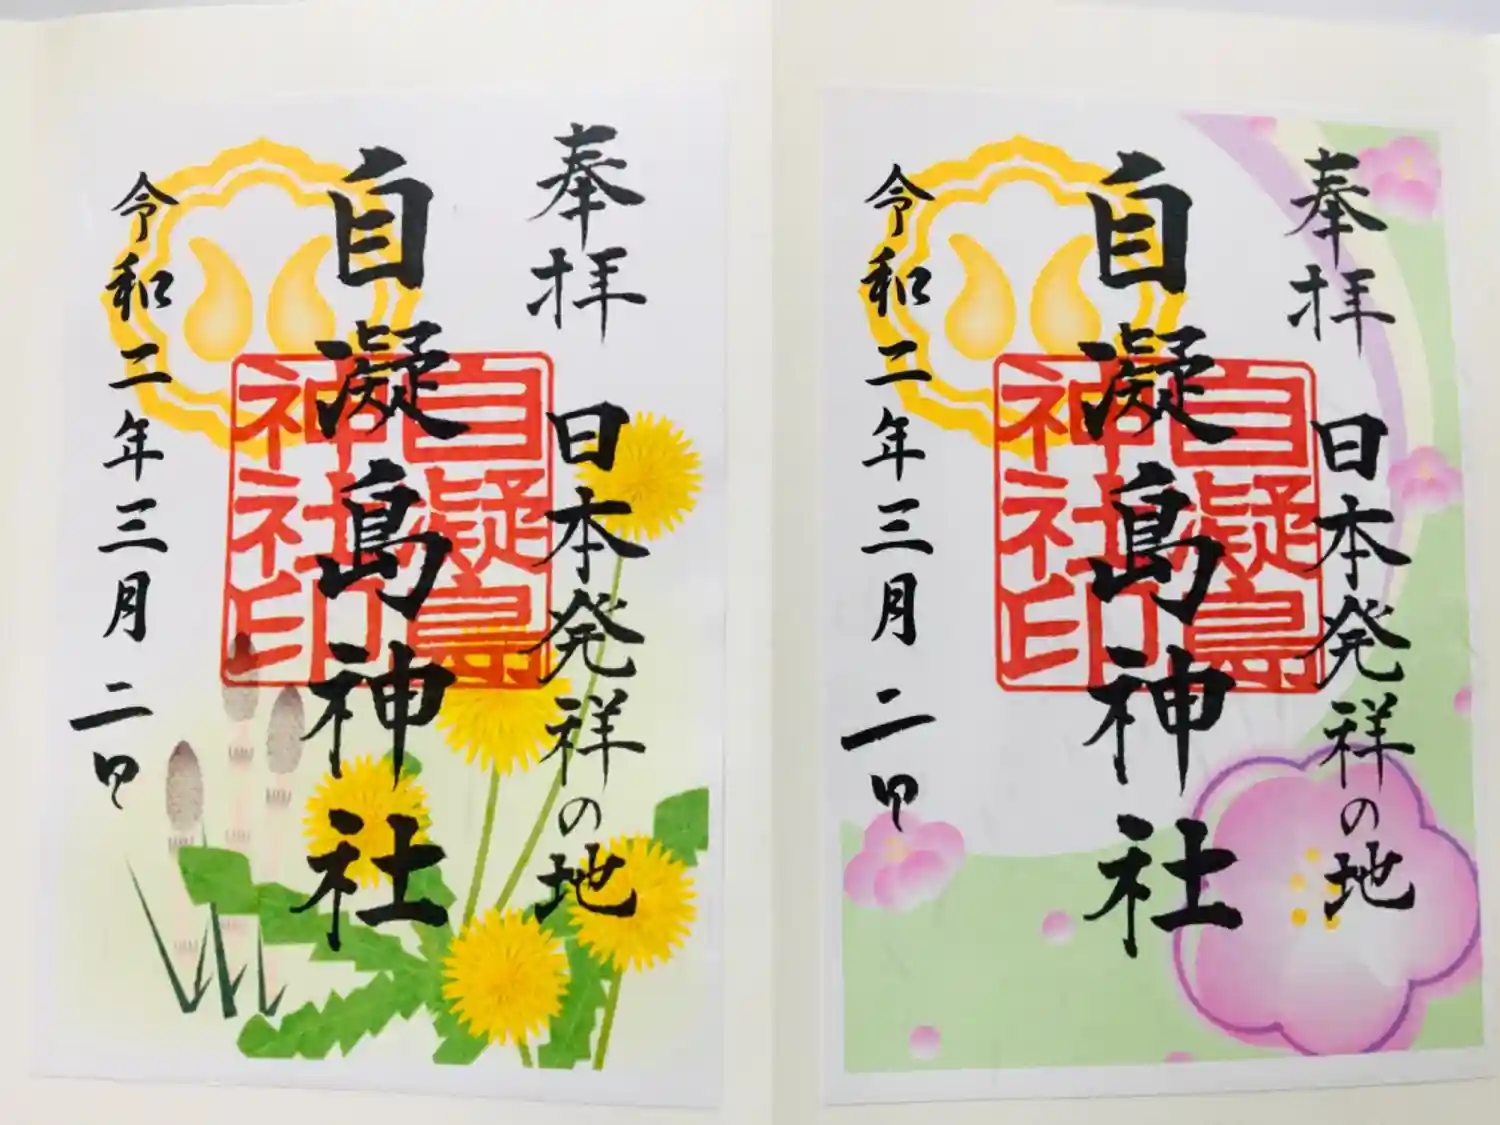 奉拝
日本発祥の地
自凝島神社
自凝島
神社印
令和二年三月二日
奉拝
日本発祥の地
自凝島神社
自凝島
神社印
令和二年三月二日